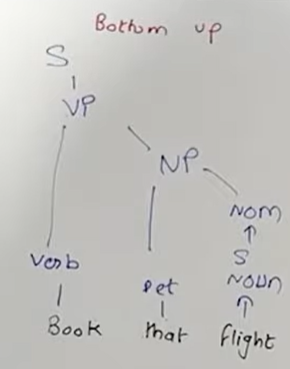 Bottom up
S
VP
NP
NOM
S
Verb Det NOUN
Book that flight